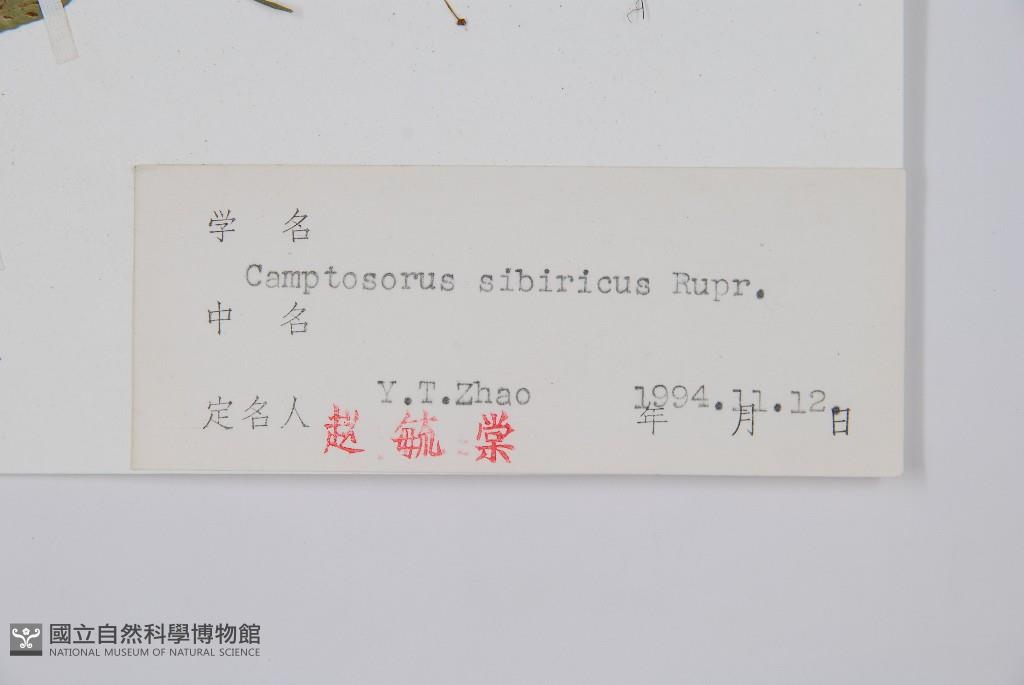 学 名
Camptosorus sibiricus Rupr.
中 名
Y.T.Zhao 1994.11.12.
定名人 赵 毓 棠 年 月 日
國立自然科學博物館
NATIONAL MUSEUM OF NATURAL SCIENCE